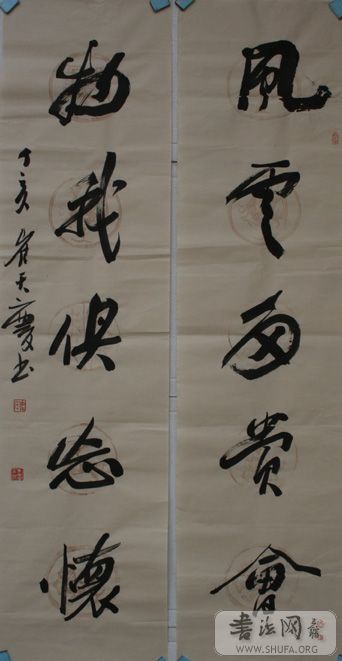 風雲貴會
物我俱忘懷
丁亥崔天慶书
書法网
WWW.SHUFA.ORG